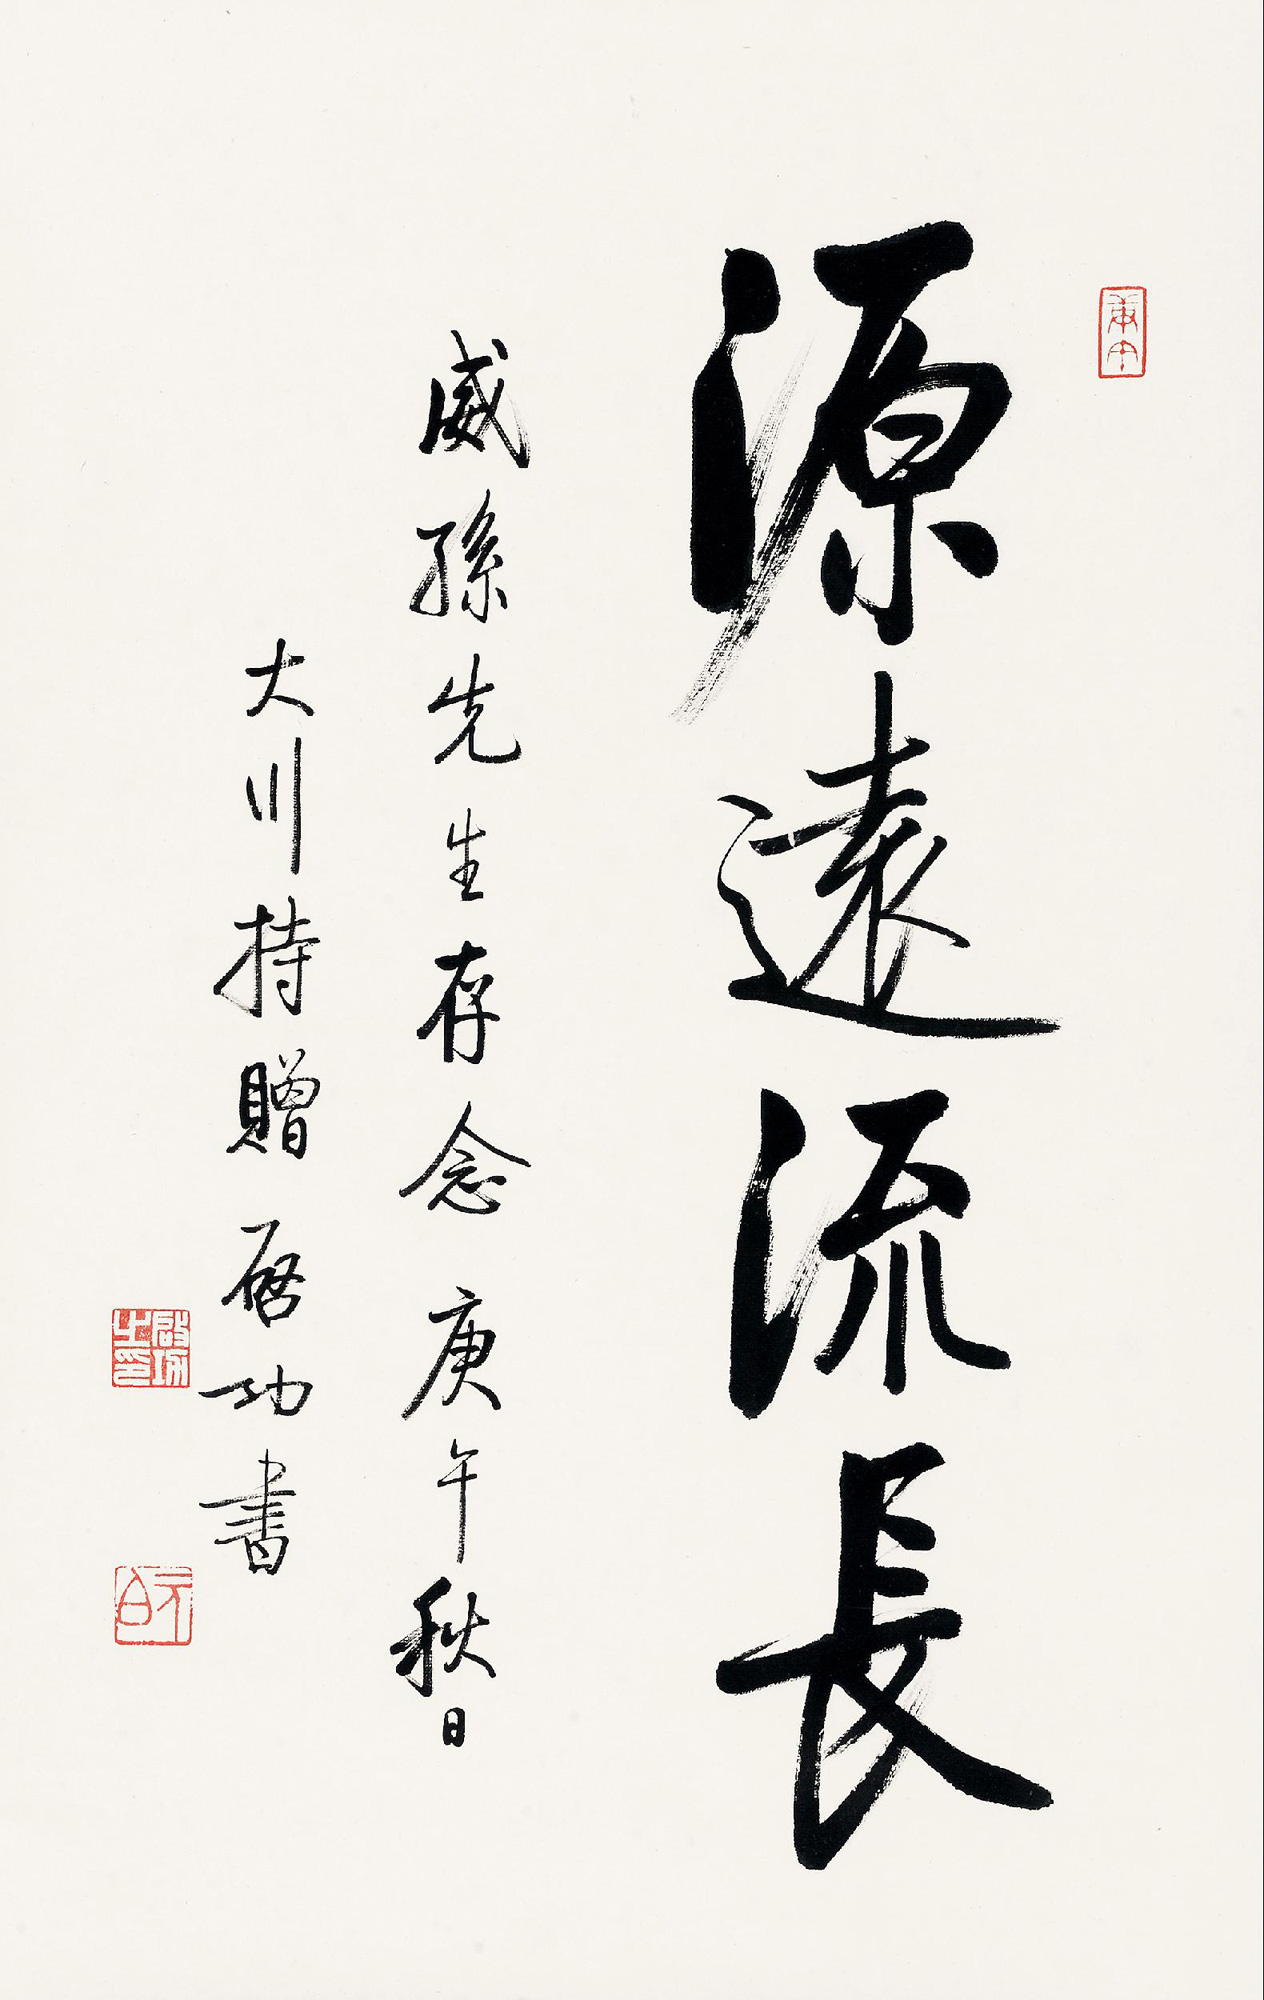 源遠流長
威孫先生存念庚午秋日
大川持贈啓功書
啟功之印
元白